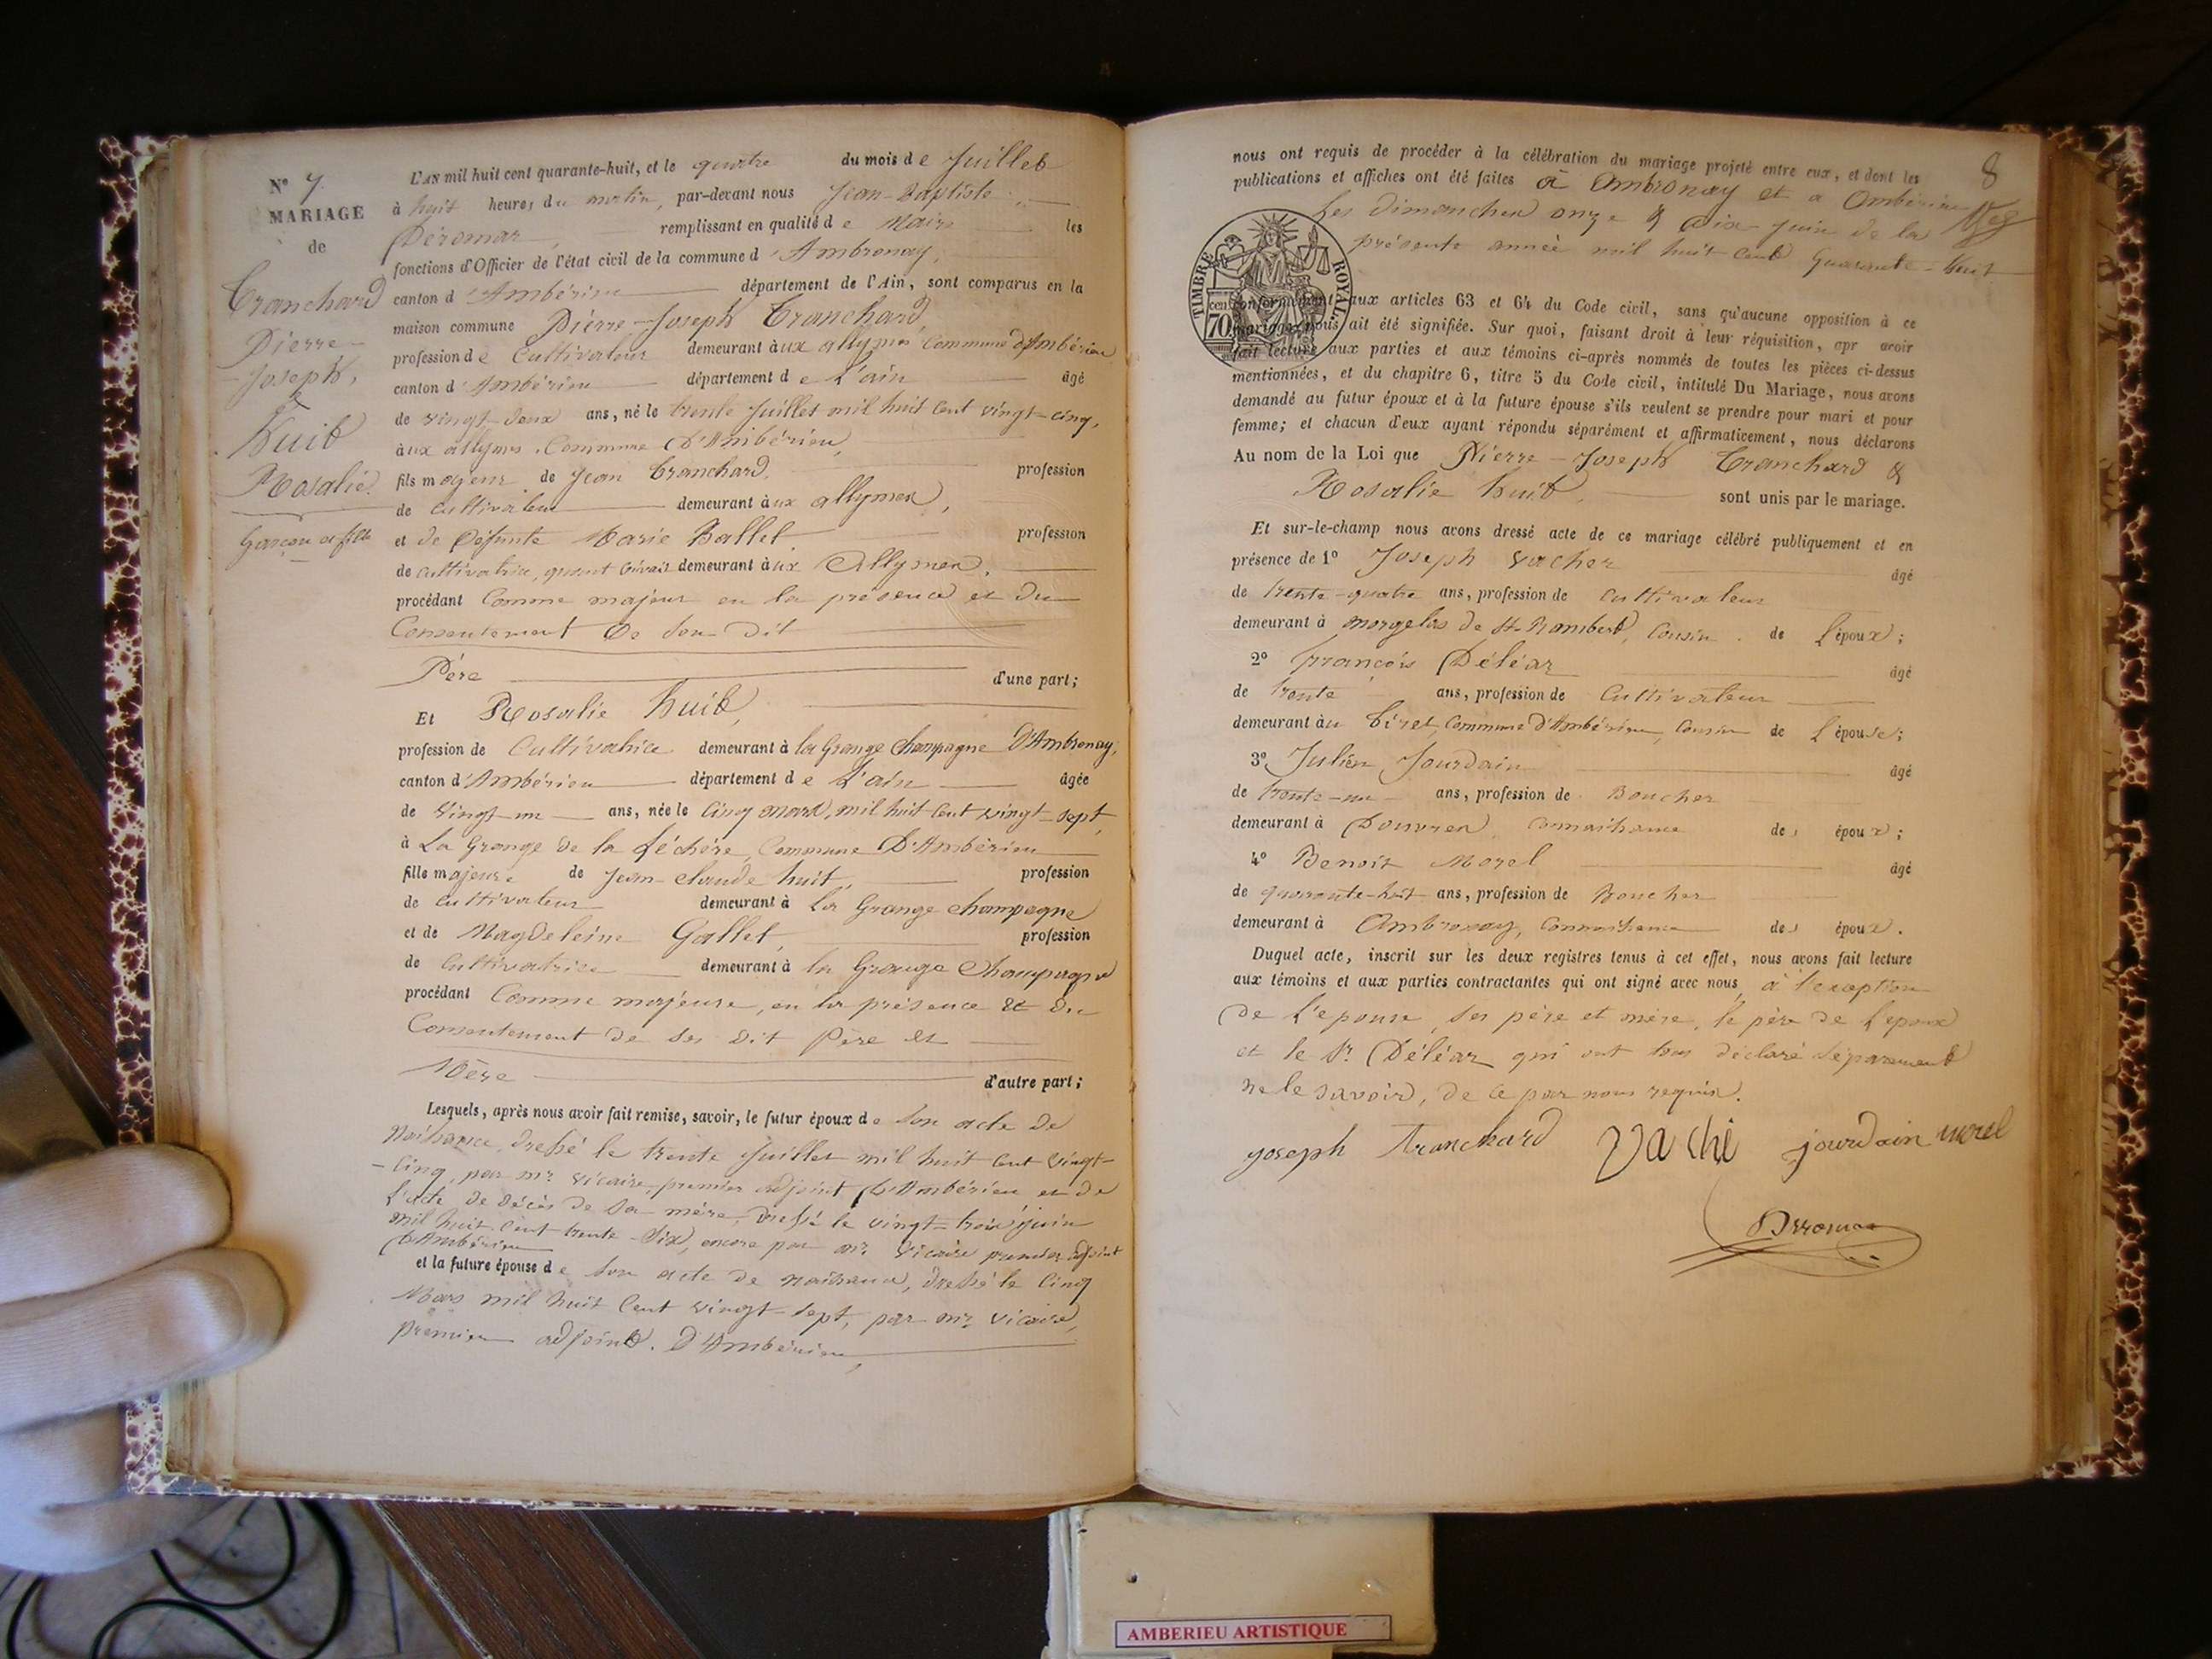 N° 7.
MARIAGE
de
Tranchard
Pierre-
Joseph,
&
Huit
Rosalie.
Garçon et fille
L'AN mil huit cent quarante-huit, et le quatre du mois de Juillet
à huit heures du matin, par-devant nous Jean-Baptiste
Déromas, remplissant en qualité de Maire les
fonctions d'Officier de l'état civil de la commune d'Ambronay,
canton d'Ambérieu département de l'Ain, sont comparus en la
maison commune Pierre-Joseph Tranchard,
profession de Cultivateur demeurant aux allymes Commune d'Ambérieu
canton d'Ambérieu département de L'ain âgé
de vingt-deux ans, né le trente Juillet mil huit cent vingt-cinq,
aux allymes, Commune D'Ambérieu,
fils majeur de Jean Tranchard, profession
de cultivateur demeurant aux allymes,
et de Défunte Marie Ballet profession
de cultivatrice, quant vivait demeurant aux Allymes,
procédant Comme majeur en la présence et du
Consentement De son Dit
Père d'une part;
Et Rosalie huit,
profession de Cultivatrice demeurant à la Grange Champagne D'Ambronay,
canton d'Ambérieu département de L'ain âgée
de vingt-un ans, née le cinq mars, mil huit cent vingt-sept,
à La Grange de la Léchère, Commune D'Ambérieu
fille majeure de Jean-claude huit, profession
de cultivateur demeurant à La Grange champagne
et de Magdeleine Gallet, profession
de Cultivatrice demeurant à la Grange Champagne
procédant Comme majeure, en la présence et du
Consentement de ses dit Père et
Mère d'autre part;
Lesquels, après nous avoir fait remise, savoir, le futur époux de son acte de
Naissance, dressé le trente Juillet mil huit cent vingt-
-cinq, par mr. Vicaire, premier adjoint D'Ambérieu et de
l'acte de décès de sa mère, dressé le vingt-trois juin
mil huit cent trente-six, encore par mr. Vicaire premier adjoint
D'Ambérieu
et la future épouse de son acte de naissance, dressé le cinq
Mars mil huit cent vingt-sept, par mr. Vicaire,
premier adjoint. D'Ambérieu,
8
nous ont requis de procéder à la célébration du mariage projeté entre eux, et dont les
publications et affiches ont été faites à Ambronay et a Ambérieu
Les dimanches onze & dix juin de la
présente année mil huit cent quarante-huit
TIMBRE ROYAL
cen
70
conformément aux articles 63 et 64 du Code civil, sans qu'aucune opposition à ce
mariage nous ait été signifiée. Sur quoi, faisant droit à leur réquisition, apr avoir
fait lecture aux parties et aux témoins ci-après nommés de toutes les pièces ci-dessus
mentionnées, et du chapitre 6, titre 5 du Code civil, intitulé Du Mariage, nous avons
demandé au futur époux et à la future épouse s'ils veulent se prendre pour mari et pour
femme; et chacun d'eux ayant répondu séparément et affirmativement, nous déclarons
Au nom de la Loi que Pierre-Joseph Tranchard &
Rosalie huit, sont unis par le mariage.
Et sur-le-champ nous avons dressé acte de ce mariage célébré publiquement et en
présence de 1° Joseph Vacher âgé
de trente-quatre ans, profession de cultivateur
demeurant à morgelas de St-Rambert, Cousin de l'époux;
2° françois Déléaz âgé
de trente ans, profession de Cultivateur
demeurant au Tiret, Commune d'Ambérieu, Cousin de l'épouse;
3° Julien Jourdain âgé
de trente-un ans, profession de Boucher
demeurant à Douvres, Connaissance des époux;
4° Benoit Morel âgé
de quarante-huit ans, profession de Boucher
demeurant à Ambronay, Connaissance des époux.
Duquel acte, inscrit sur les deux registres tenus à cet effet, nous avons fait lecture
aux témoins et aux parties contractantes qui ont signé avec nous, à l'exception
De L'épouse, ses père et mère, le père de l'époux
et le Sr. Déléaz qui ont tous déclaré séparement
ne le savoir, de ce par nous requis.
joseph tranchard vaché jourdain morel
Derromas
AMBERIEU ARTISTIQUE